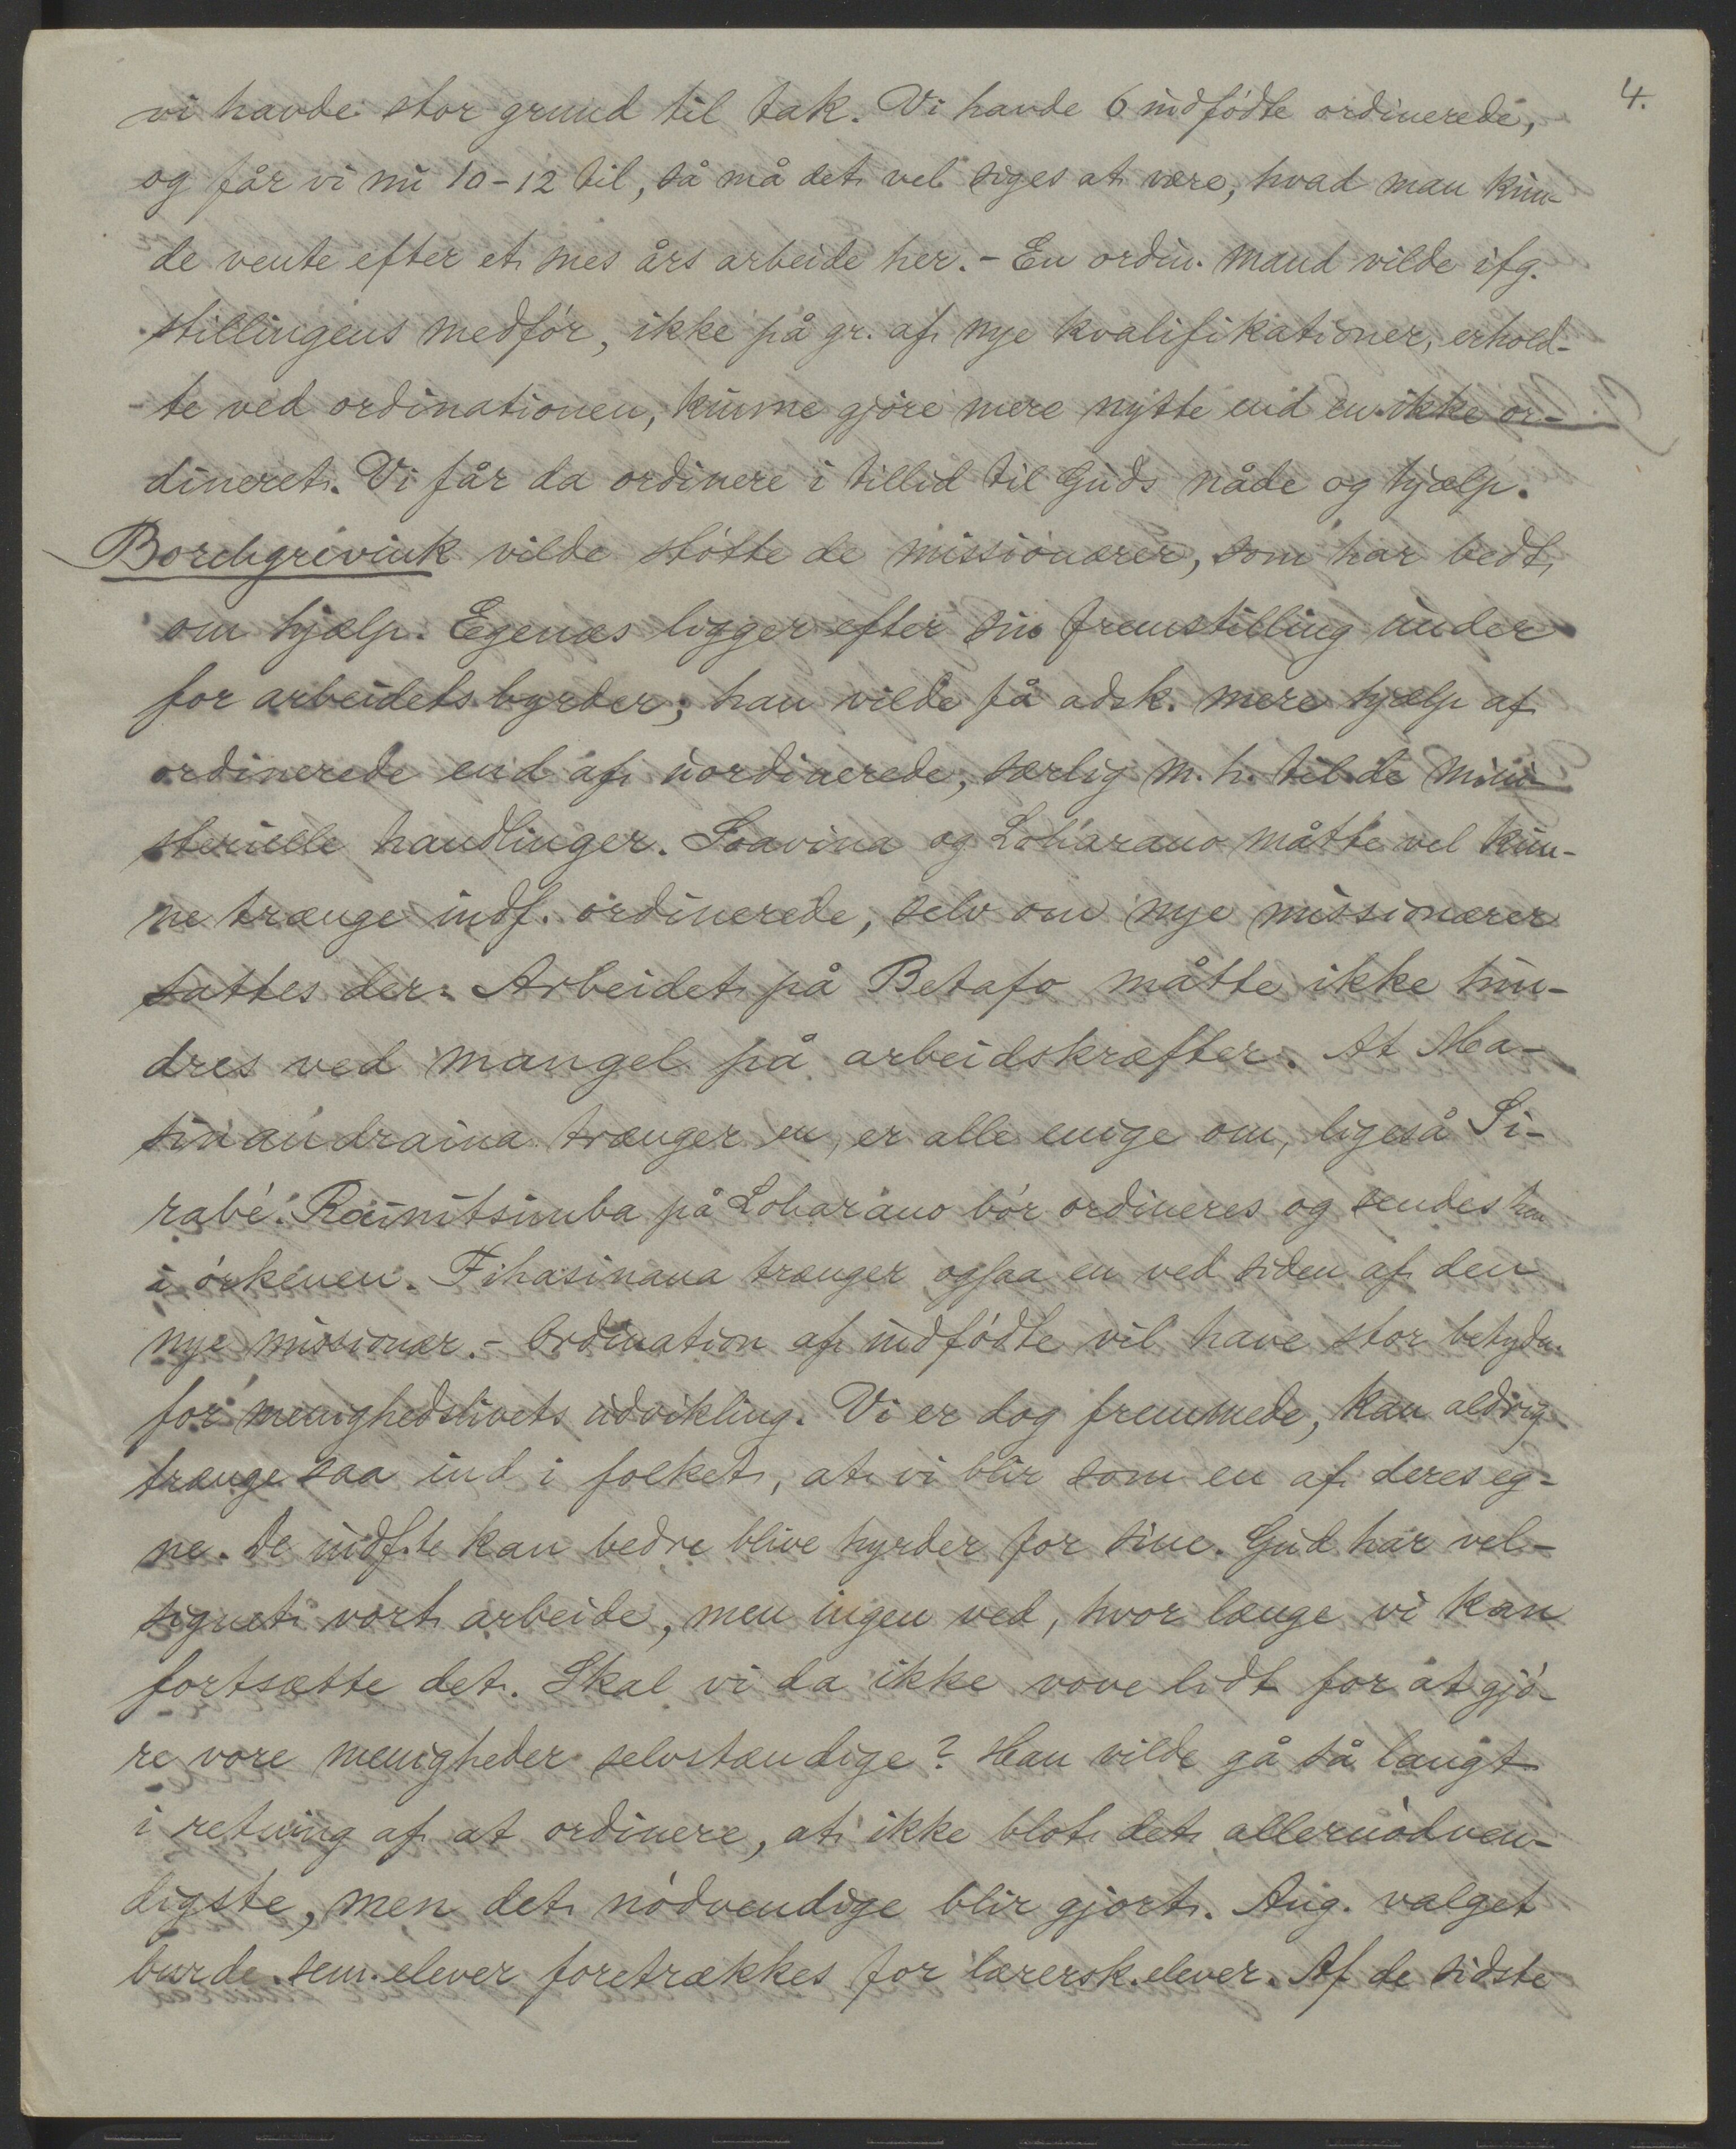 4.
vi havde stor grund til tak. Vi havde 6 indfødte ordinerede,
og får vi nu 10-12 til, så må det vel siges at være, hvad man kun-
de vente efter et snes års arbeide her. - En ordin. mand vilde ifg.
stillingens medfør, ikke på gr. af nye kvalifikationer, erhold-
te ved ordinationen, kunne gjøre mere nytte end en ikke or-
dineret. Vi får da ordinere i tillid til Guds nåde og hjælp.
Borchgrevink vilde støtte de missionærer, som har bedt
om hjælp. Egenæs ligger efter sin fremstilling under
for arbeidets byrder; han vilde få adsk. mere hjælp af
ordinerede end af uordinerede, særlig m. h. til de mini-
sterielle handlinger. Soavina og Loharano måtte vel kun-
ne trænge indf. ordinerede, selv om nye missionærer
sattes der. Arbeidet på Betafo måtte ikke hin-
dres ved mangel på arbeidskræfter. At Ma-
sinandraina trænger en, er alle enige om, ligeså Si-
rabé. Rainitsimba på Loharano bør ordineres og sendes hen
i ørkenen. Fihasinana trænger ogsaa en ved siden af den
nye missionær. - Ordination af indfødte vil have stor betydn.
for menighedslivets udvikling. Vi er dog fremmede, kan aldrig
trænge saa ind i folket, at vi blir som en af deres eg-
ne. De indfte kan bedre blive hyrder for sine. Gud har vel-
signet vort arbeide, men ingen ved, hvor længe vi kan
fortsætte det. Skal vi da ikke vove lidt for at gjø-
re vore menigheder selvstændige? Han vilde gå så langt
i retning af at ordinere, at ikke blot det allernødven-
digste, men det nødvendige blir gjort. Ang. valget
burde sem. elever foretrækkes for lærersk. elever. Af de sidste